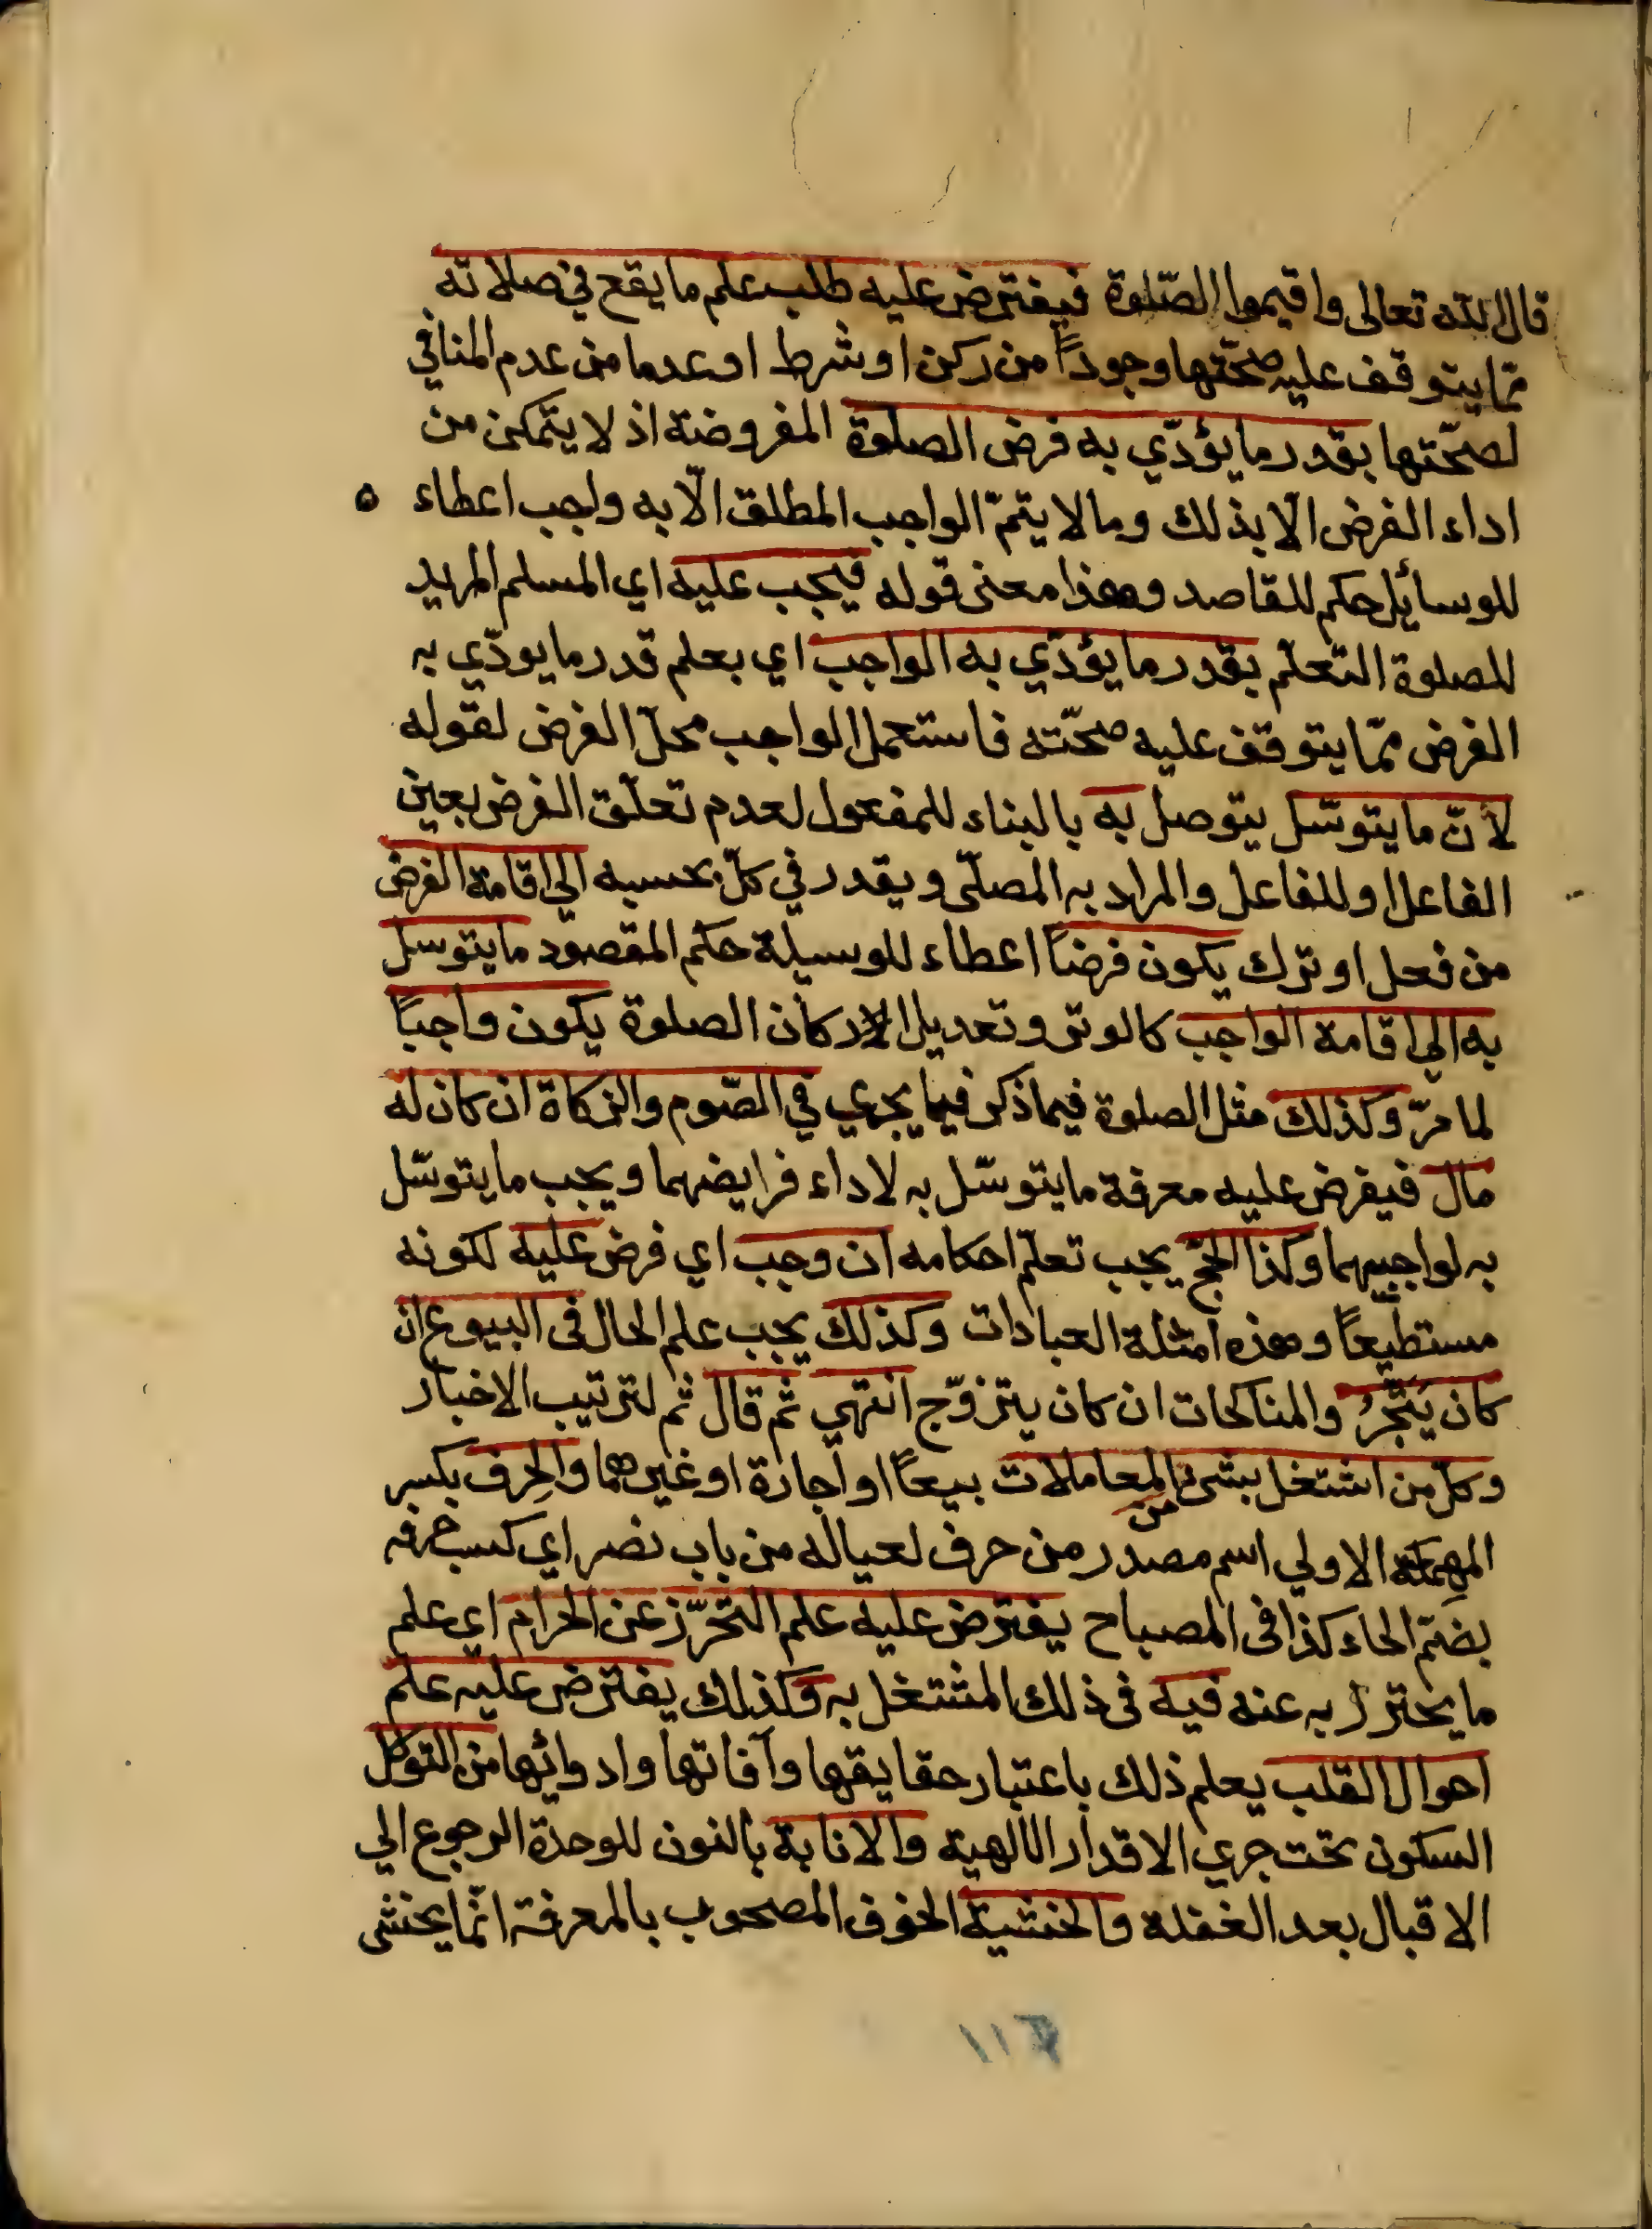 قال الله تعالى واقيموا الصّلوة فيفترض عليه طلب علم ما يقع في صلاته
ممّا يتوقف عليه صحّتها وجوداً من ركن او شرط او عدما من عدم المنافي
لصحّتها بقدر ما يؤدّي به فرض الصلوة المفروضة اذ لا يتمكن من
اداء الفرض الّا بذلك وما لا يتمّ الواجب المطلق الّا به واجب اعطاء ٥
للوسائل حكم للمقاصد وهذا معنى قوله فيجب عليه اي المسلم المريد
للصلوة التعلّم بقدر ما يؤدّي به الواجب اي بعلم قدر ما يودّي به
الفرض ممّا يتوقف عليه صحّته فاستعمل الواجب محلّ الفرض لقوله
لأنّ ما يتوسّل يتوصل به بالبناء للمفعول لعدم تعلّق الغرض بعين
الفاعل او للفاعل والمراد به المصلّى ويقدر في كلّ بحسبه الى اقامة الفرض
من فعل او ترك يكون فرضاً اعطاء للوسيلة حكم المقصود ما يتوسل
به الي اقامة الواجب كالوتر وتعديل الاركان الصلوة يكون واجباً
لما مرّ وكذلك مثل الصلوة فيما ذكر فيما يجري في الصّوم والزكاة ان كان له
مال فيفرض عليه معرفة ما يتوسّل به لاداء فرايضهما ويجب ما يتوسّل
به لواجبيهما وكذا الحجّ يجب تعلّم احكامه ان وجب اي فرض عليه لكونه
مستطيعاً وهذه امثلة العبادات وكذلك يجب علم الحال فى البيوع ان
كان يَتّجرُ والمناكحات ان كان يتزوّج انتهي ثم قال ثم لترتيب الاخبار
وكلّ من اشتغل بشئ من المعاملات بيعاً او اجارة او غيرهما والحِرف بكسر
المهملة الاولي اسم مصدر من حرف لعياله من باب نصر اي كسب حرفه
بضمّ الحاء كذا فى المصباح يفترض عليه علم التحرّز عن الحرام اي علم
ما يحترز به عنه فيه فى ذلك المشتغل به وكذلك يفترض عليه علم
احوال القلب يعلم ذلك باعتبار حقايقها وآفاتها وادوائها من التوكل
السكون تحت جري الاقدار الالهية والانابة بالنون للوحدة الرجوع الي
الاقبال بعد الغفلة والخشية الخوف المصحوب بالمعرفة انّما يخشى